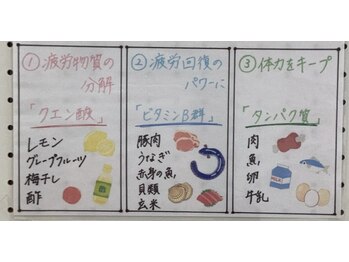 ①疲労物質の
分解
「クエン酸」
レモン
グレープフルーツ
梅干し
酢
②疲労回復の
パワーに
「ビタミンB群」
豚肉
うなぎ
赤身の魚
貝類
玄米
③体力をキープ
「タンパク質」
肉
魚
卵
牛乳
MILK